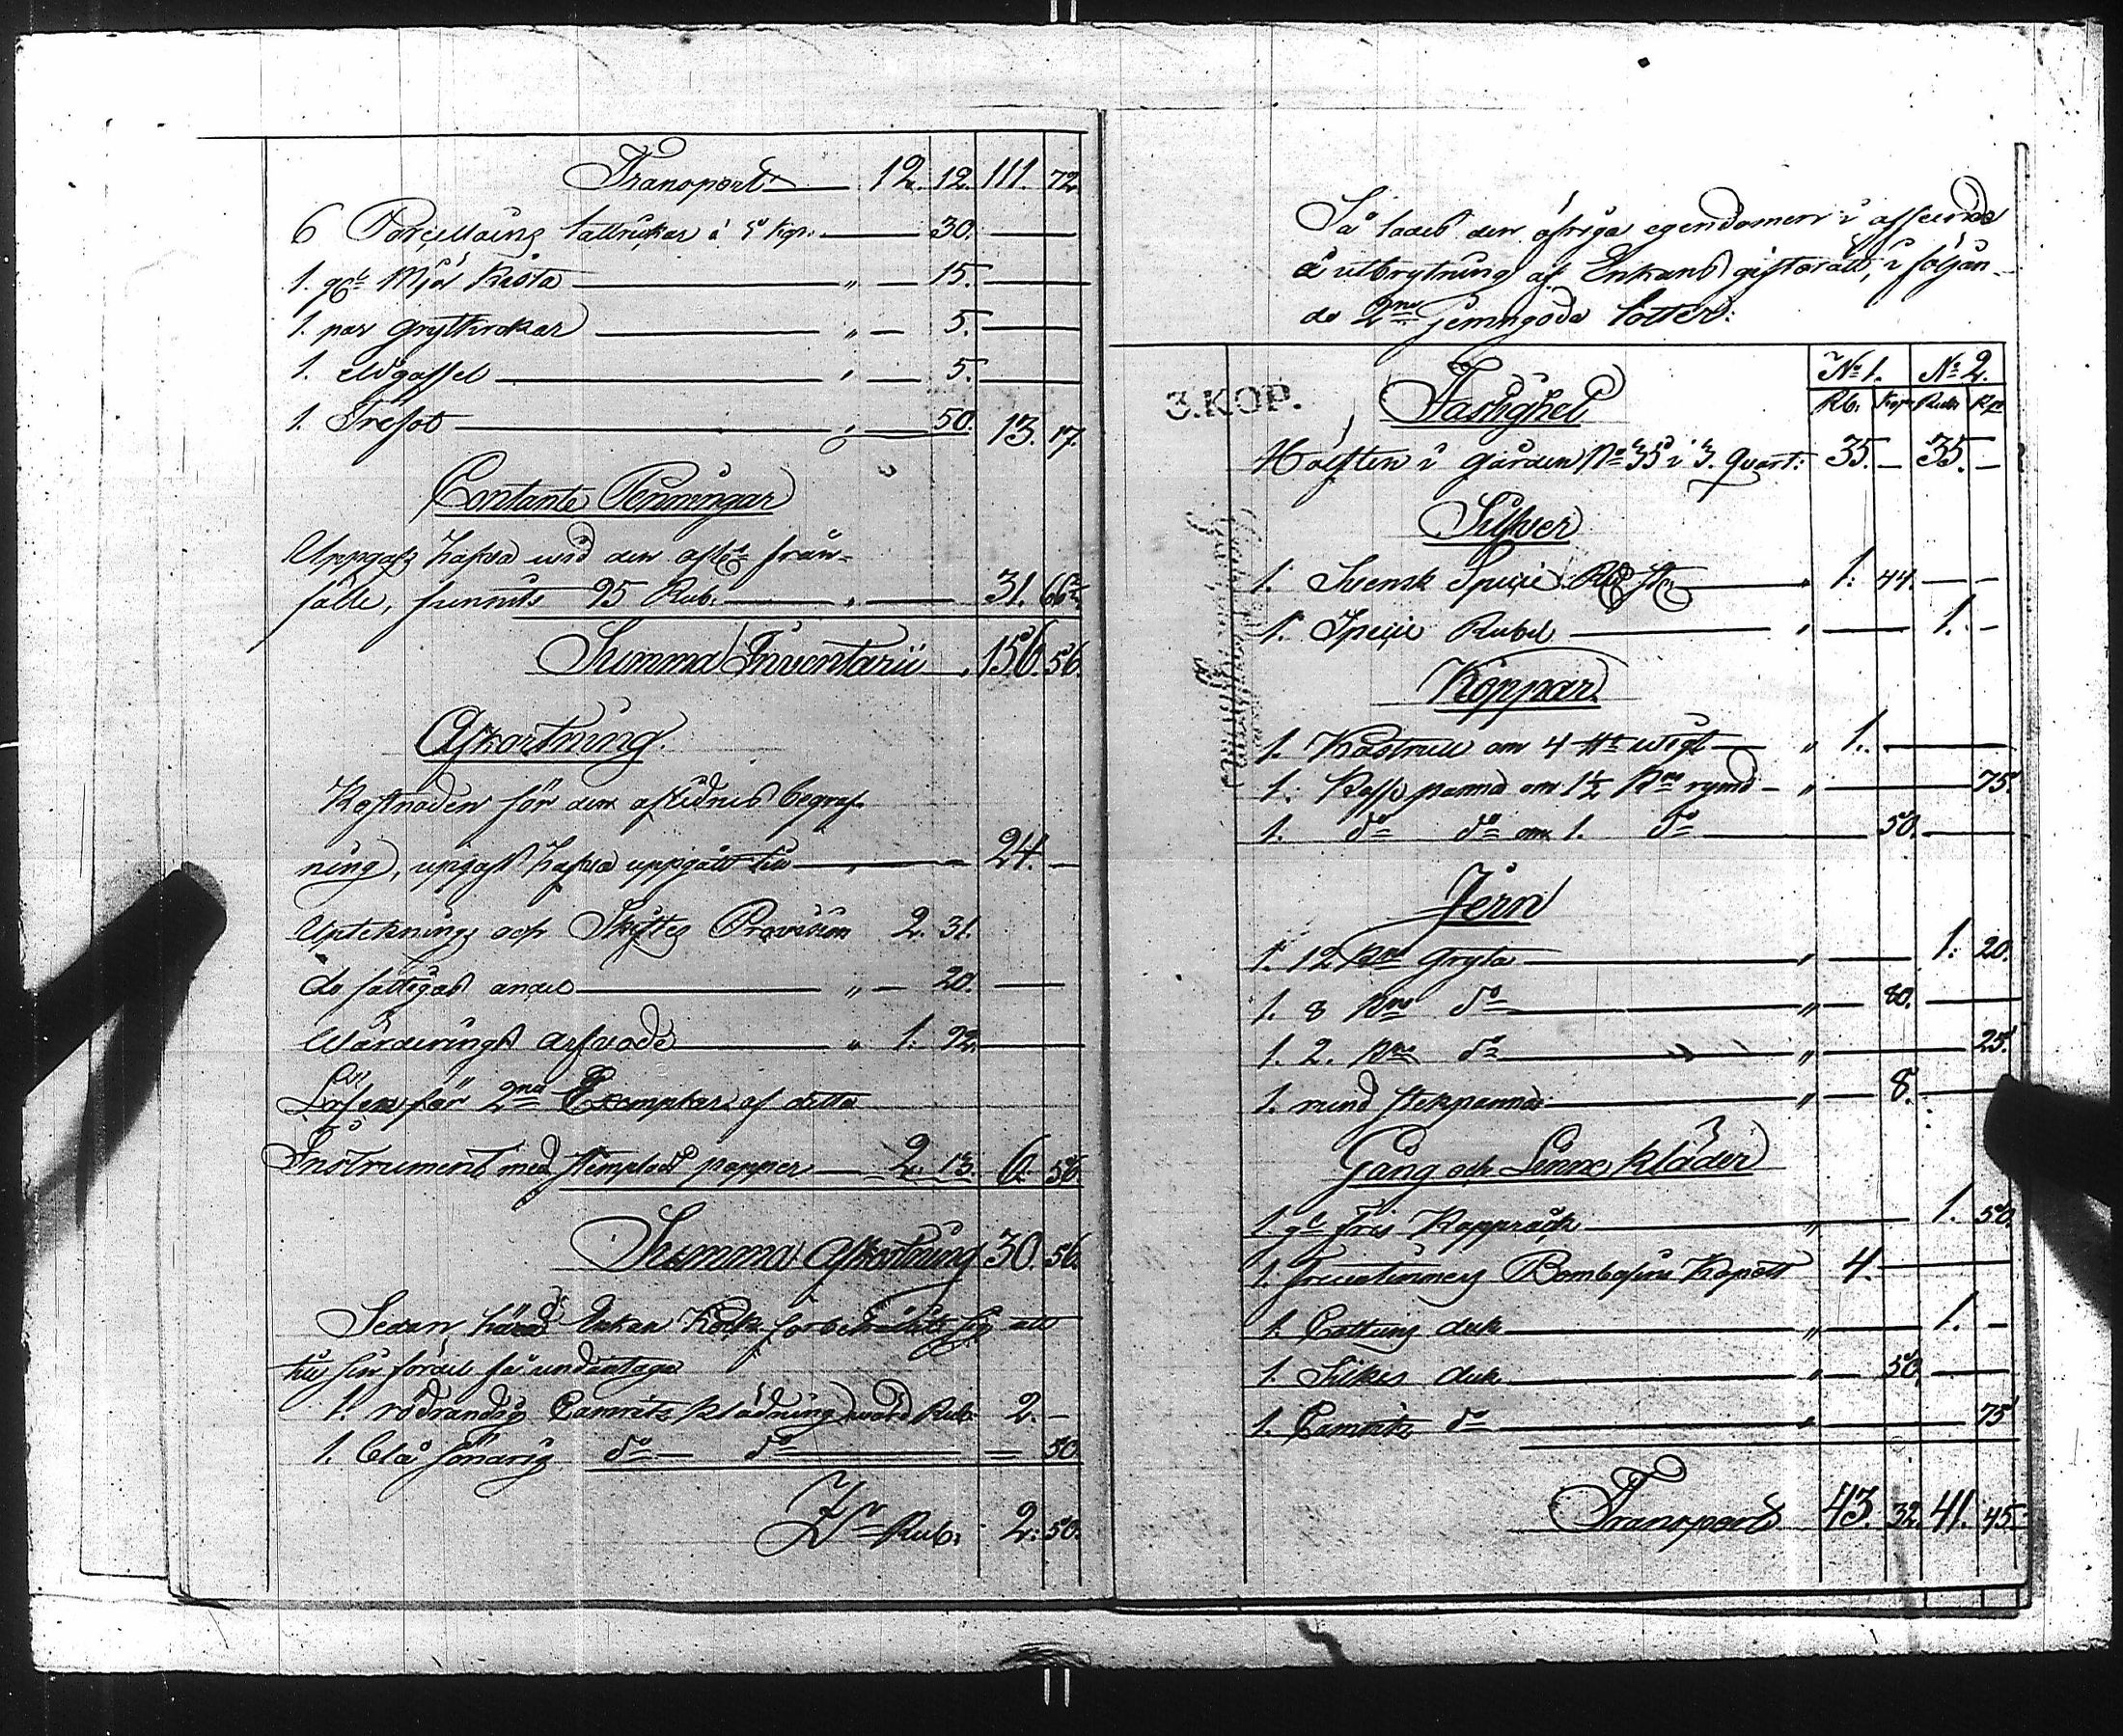 Transport 12. 12. 111. 72.
6 Porcellains tallrickar à 5 kop: 30.
1. gl Mjöl Kista " 15.
1. par grytkrokar " 5.
1. eldgaffel " 5.
1. Trefot " 50. 13. 17.
Contante Penningar
Uppgafs hafva vid den afl: från-
fälle, funnits 95 Rub. " 31. 66 2/3
Summa Inventarii 156. 56.
Afkortning.
Kostnaden för den aflidnes begraf-
ning, upgafs hafva uppgått till " 24. —
Uptecknings och Skiftes Provision 2. 31.
de fattigas andel " 20.
Wärderings arfvode " 1. 92.
Lösen för 2ne Exemplar af detta
Instrument med stempladt papper 2. 13. 6. 56.
Summa Afkortning 30. 56.
Sedan Enkan förbehållit sig att
till sin fördel få undantaga
1. rödrandig Camrits klädning värd Rub. 2. —
1. blå do do 50.
Sr Rub. 2. 50.
Så lades den öfriga egendomen i afseende
å utbrytning af Enkans giftorätt, i följan-
de 2ne jemngoda lotter:
No 1. No 2.
3.KOP.
Fastighet
Rb. Kop Rub Kp
Hälften i gården No 35 i 3. Quart: 35. — 35. —
Silfver
1. Svensk Specie Rd " 1. 44. — —
1. Specie Rubel " 1. —
Koppar
1. Kastrull om 4 ℔ wigt " 1.
1. Kaffe panna om 1½ K:s rymd " 75.
1. do do om 1. do 50.
Jern
1. 12 K:s Gryta " 1. 20.
1. 8 K:s do " 80.
1. 2. K:s do " 25.
1. rund stekpanna " 8.
Gång och Linne kläder
1 gl Fris Kapprock " 1. 50.
1. Fruentimmers Bombasins Kapott 4.
1. Cattuns duk " 1. —
1. Silkes duk " 50.
1. Camrits do " 75
Transport 43. 32. 41. 45.